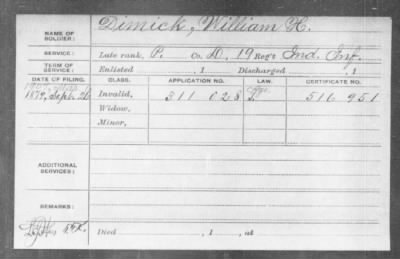 NAME OF SOLDIER: Dimick, William H.
SERVICE: Late rank, P. Co. D, 19 Reg't Ind. Inf.
TERM OF SERVICE: Enlisted , 1 Discharged , 1
DATE OF FILING. CLASS. APPLICATION NO. LAW. CERTIFICATE NO.
1879, Sept. 26 Invalid, 311 028 516 951
Widow,
Minor,
ADDITIONAL SERVICES:
REMARKS:
Died , 1 , at